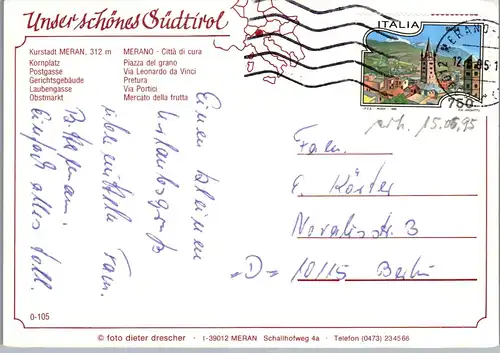 Unser schönes Südtirol
Kurstadt MERAN, 312 m MERANO - Città di cura
Kornplatz Piazza del grano
Postgasse Via Leonardo da Vinci
Gerichtsgebäude Pretura
Laubengasse Via Portici
Obstmarkt Mercato della frutta
ITALIA
750
MERANO
15.06.95
Einen kleinen
Urlaubsgruß
übermittelt Fam.
einfach alles toll.
Fam.
E. Köster
Novalisstr. 3
"D" 10115 Berlin
0-105
© foto dieter drescher · I-39012 MERAN Schallhofweg 4a · Telefon (0473) 234566